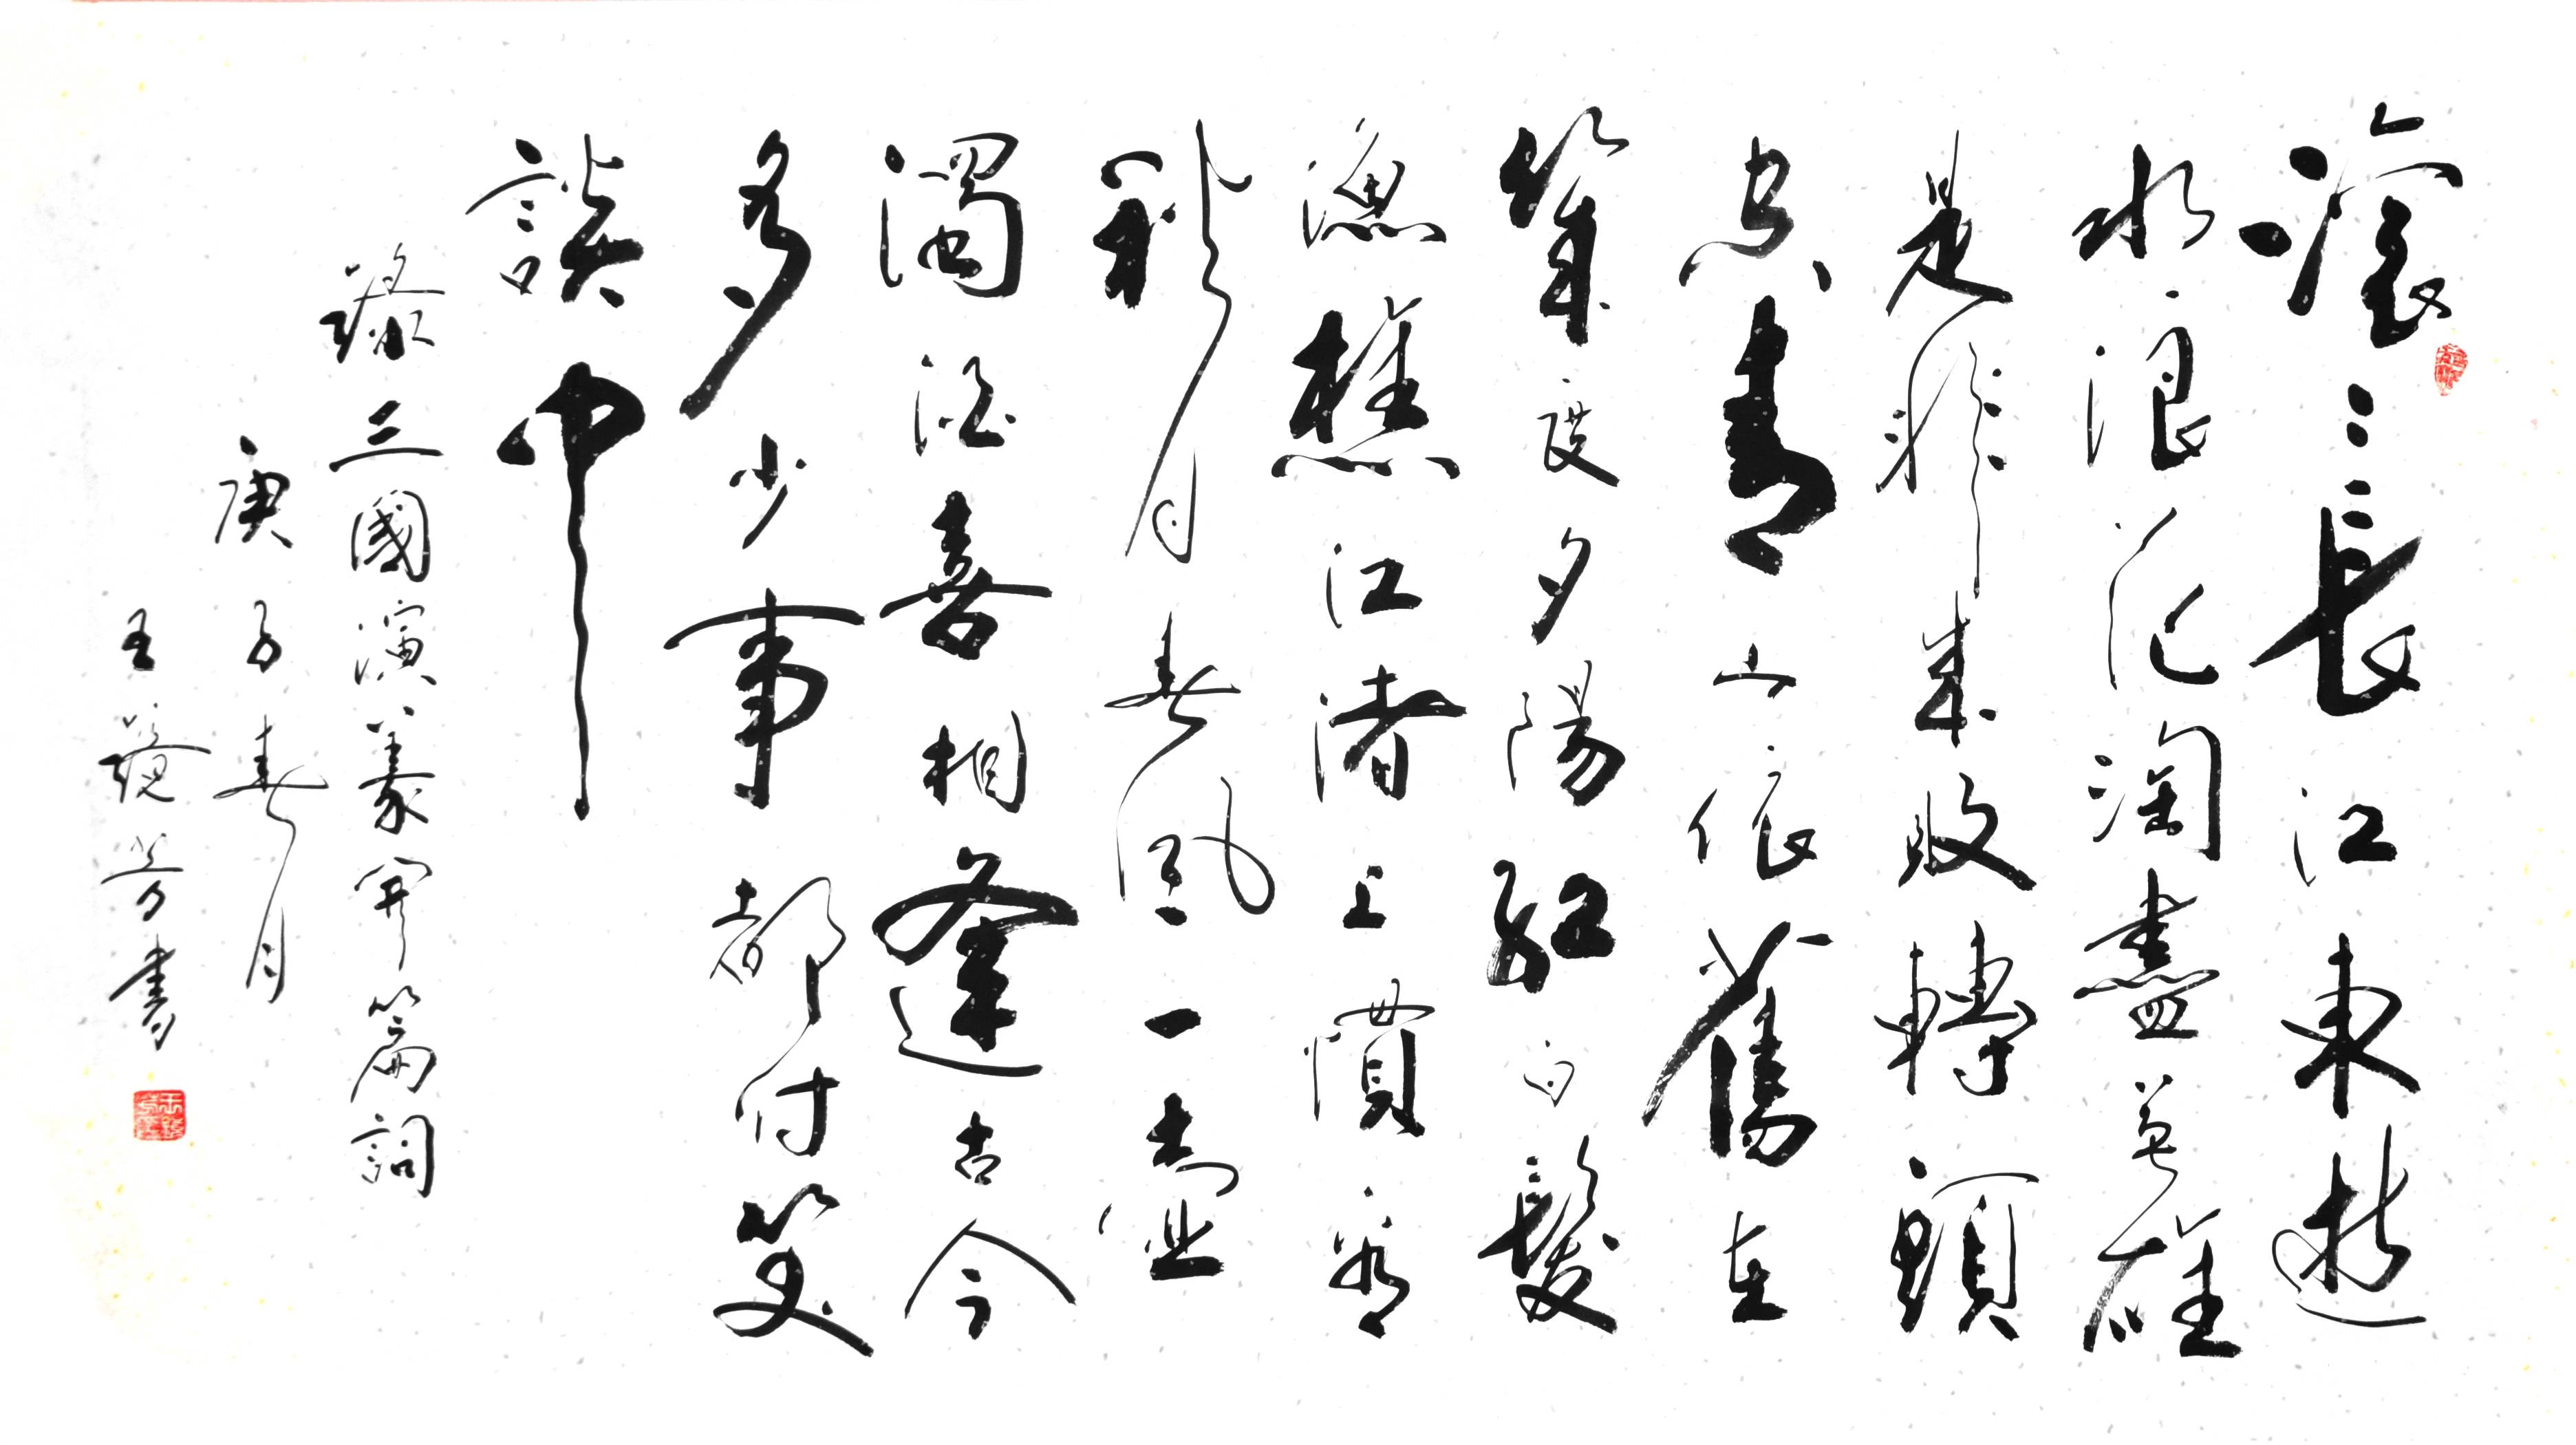 滾〻長江東逝
水浪花淘盡英雄
是非成敗轉頭
空青山依舊在
幾度夕陽紅白髮
漁樵江渚上慣看
秋月春風一壺
濁酒喜相逢古今
多少事都付笑
談中
錄三國演義開篇詞
庚子春月
王芳書